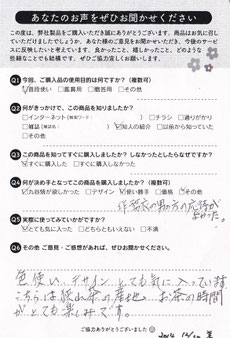 あなたのお声をぜひお聞かせください
この度は、弊社製品をご購入いただき誠にありがとうございます。商品はお気に召していただけましたでしょうか。あなた様のご意見をお聞かせいただき、今後のサービスに反映したいと考えています。良かったこと、嬉しかったこと、どのような些細なことでも結構です。ぜひご協力宜しくお願いします。
Q1 今回、ご購入品の使用目的は何ですか?(複数可)
☑普段使い □鑑賞用 □贈答用 □その他
Q2 何がきっかけで、この商品を知りましたか?
□インターネット(検索ワード: ) □チラシ □通りがかり
□雑誌(雑誌名: ) ☑知人の紹介 □以前から知っていた
□その他
Q3 この商品を知ってすぐに購入しましたか?しなかったとしたらなぜですか?
☑すぐに購入した □すぐに購入しなかった
Q4 何が決め手となってこの商品を購入しましたか?(複数可)
□九谷焼が欲しかった □デザイン ☑使い勝手 □価格 ☑その他
Q5 実際に使ってみていかがですか?
☑とても気に入った □どちらともいえない □不満
Q6 その他 ご意見・ご感想があれば、ぜひお聞かせください。
色使い、デザイン とても気に入っています
こちらは狭山茶の産地、お茶の時間
がとても楽しみです。
ご協力ありがとうございました
2014